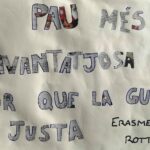 PAU MÉS
AVANTATJOSA
QUE LA GU
JUSTA
ERASME
ROTT